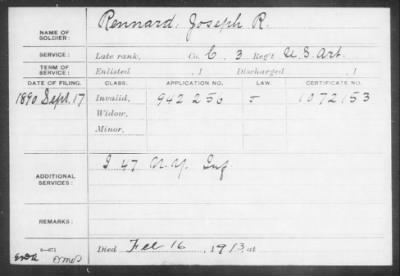 NAME OF SOLDIER: Rennard, Joseph R.
SERVICE: Late rank, Co. C, 3 Reg't U.S. Art.
TERM OF SERVICE: Enlisted , 1 Discharged , 1
DATE OF FILING. CLASS. APPLICATION NO. LAW. CERTIFICATE NO.
1890 Sept. 17 Invalid, 942 256 1072153
Widow,
Minor,
ADDITIONAL SERVICES: I 47 N.Y. Inf
REMARKS:
Died Feb 16, 1913, at